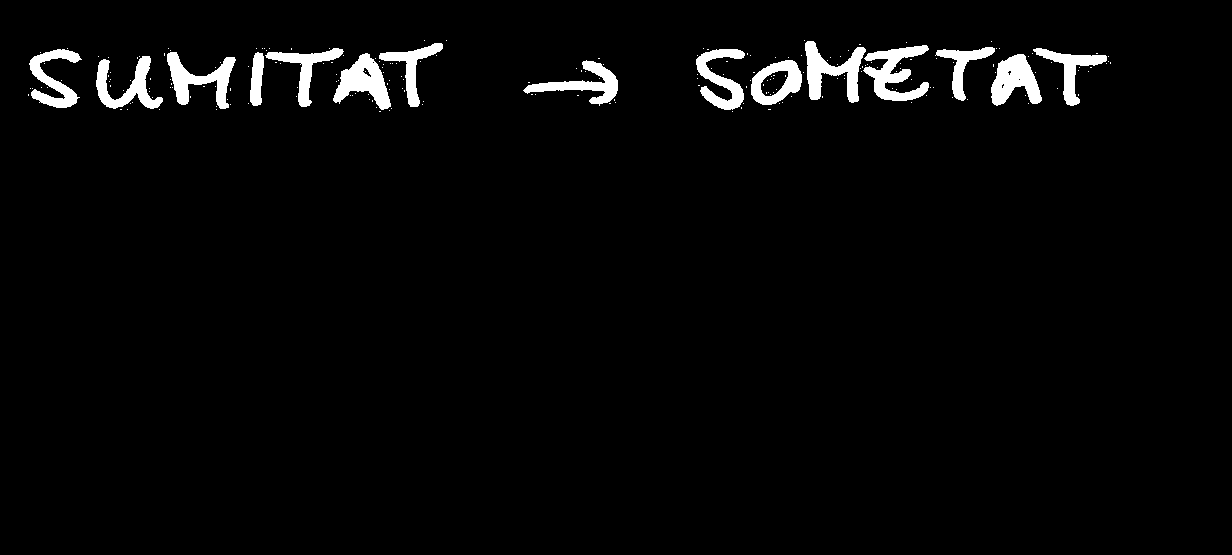 SUMITAT → SOMETAT